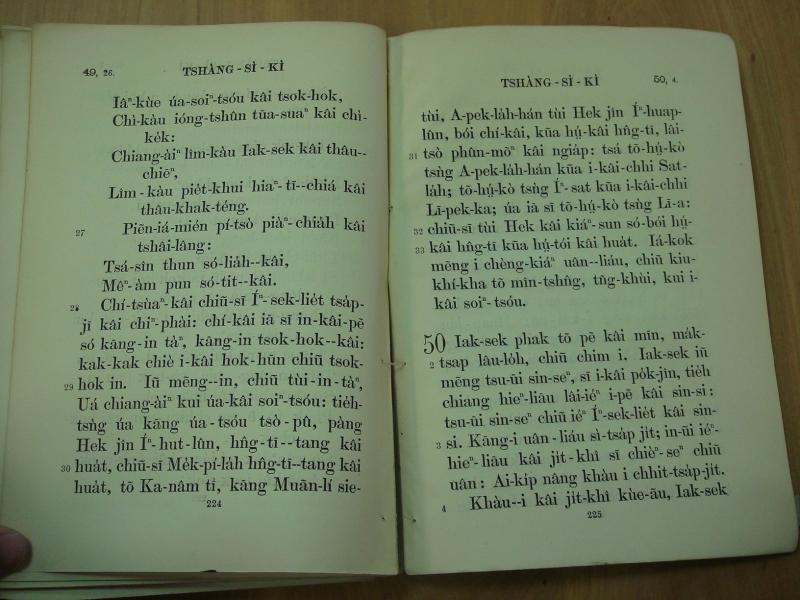 49, 26. TSHÀNG-SÌ-KÌ
Iâⁿ-kùe úa-soiⁿ-tsóu kâi tsok-hok,
Chì-kàu ióng-tshûn tūa-suaⁿ kâi chì-
ke̍k:
Chiang-àiⁿ lîm-kàu Iak-sek kâi thâu--
chiēⁿ,
Lîm-kàu pie̍t-khui hiaⁿ-tī--chiá kâi
thâu-khak-téng.
27 Piēn-iá-mién pí-tsò piàⁿ-chia̍h kâi
tshâi-lâng:
Tsá-sîn thun só-lia̍h--kâi,
Mêⁿ-àm pun só-tit--kâi.
28 Chí-tsùaⁿ-kâi chiū-sī Íⁿ-sek-lie̍t tsa̍p-
jī kâi chiⁿ-phài: chí-kâi iā sī in-kâi-pē
só kāng-in tàⁿ, kāng-in tsok-hok--kâi:
kak-kak chiè i-kâi hok-hūn chiū tsok-
29 hok in. Iū mēng--in, chiū tùi-in-tàⁿ,
Uá chiang-àiⁿ kui úa-kâi soiⁿ-tsóu: tie̍h-
tsǹg úa kāng úa-tsóu tsò-pû, pàng
Hek jîn Íⁿ-hut-lûn, hn̂g-tī--tang kâi
30 hua̍t, chiū-sī Me̍k-pí-la̍h hn̂g-tī--tang kâi
hua̍t, tŏ Ka-nâm tī, kāng Muān-lí sie-
224
TSHÀNG-SÌ-KÌ 50, 4.
tùi, A-pek-la̍h-hán tùi Hek jîn Íⁿ-huap-
lûn, bói chí-kâi, kūa hṳ́-kâi hn̂g-tī, lâi-
31 tsò phûn-mōⁿ kâi ngia̍p: tsá tō-hṳ́-kò
tsǹg A-pek-la̍h-hán kūa i-kâi-chhi Sat-
la̍h; tō-hṳ́-kò tsǹg Íⁿ-sat kūa i-kâi-chhi
Lī-pek-ka; úa iā sī tō-hṳ́-kò tsǹg Lī-a:
32 chiū-sī tùi Hek kâi kiáⁿ-sun só-bói hṳ́-
33 kâi hn̂g-tī kūa hṳ́-tói kâi hua̍t. Iá-kok
mēng i chèng-kiáⁿ uân--liáu, chiū kiu-
khí-kha tō mîn-tshn̂g, tn̄g-khùi, kui i-
kâi soiⁿ-tsóu.
50 Iak-sek phak tō pē kâi mīn, ma̍k-
2 tsap lâu-lo̍h, chiū chim i. Iak-sek iū
mēng tsu-ūi sin-seⁿ, sī i-kâi po̍k-jîn, tie̍h
chiang hieⁿ-liāu lâi-iéⁿ i-pē kâi sin-si:
tsu-ūi sin-seⁿ chiū iéⁿ Íⁿ-sek-lie̍t kâi sin-
3 si. Kāng-i uân-liáu sì-tsa̍p ji̍t; in-ūi iéⁿ-
hieⁿ-liāu kâi ji̍t-khî sī chièⁿ-seⁿ chiū
uân: Ai-ki̍p nâng khàu i chhit-tsa̍p-ji̍t.
4 Khàu--i kâi ji̍t-khî kùe-āu, Iak-sek
225